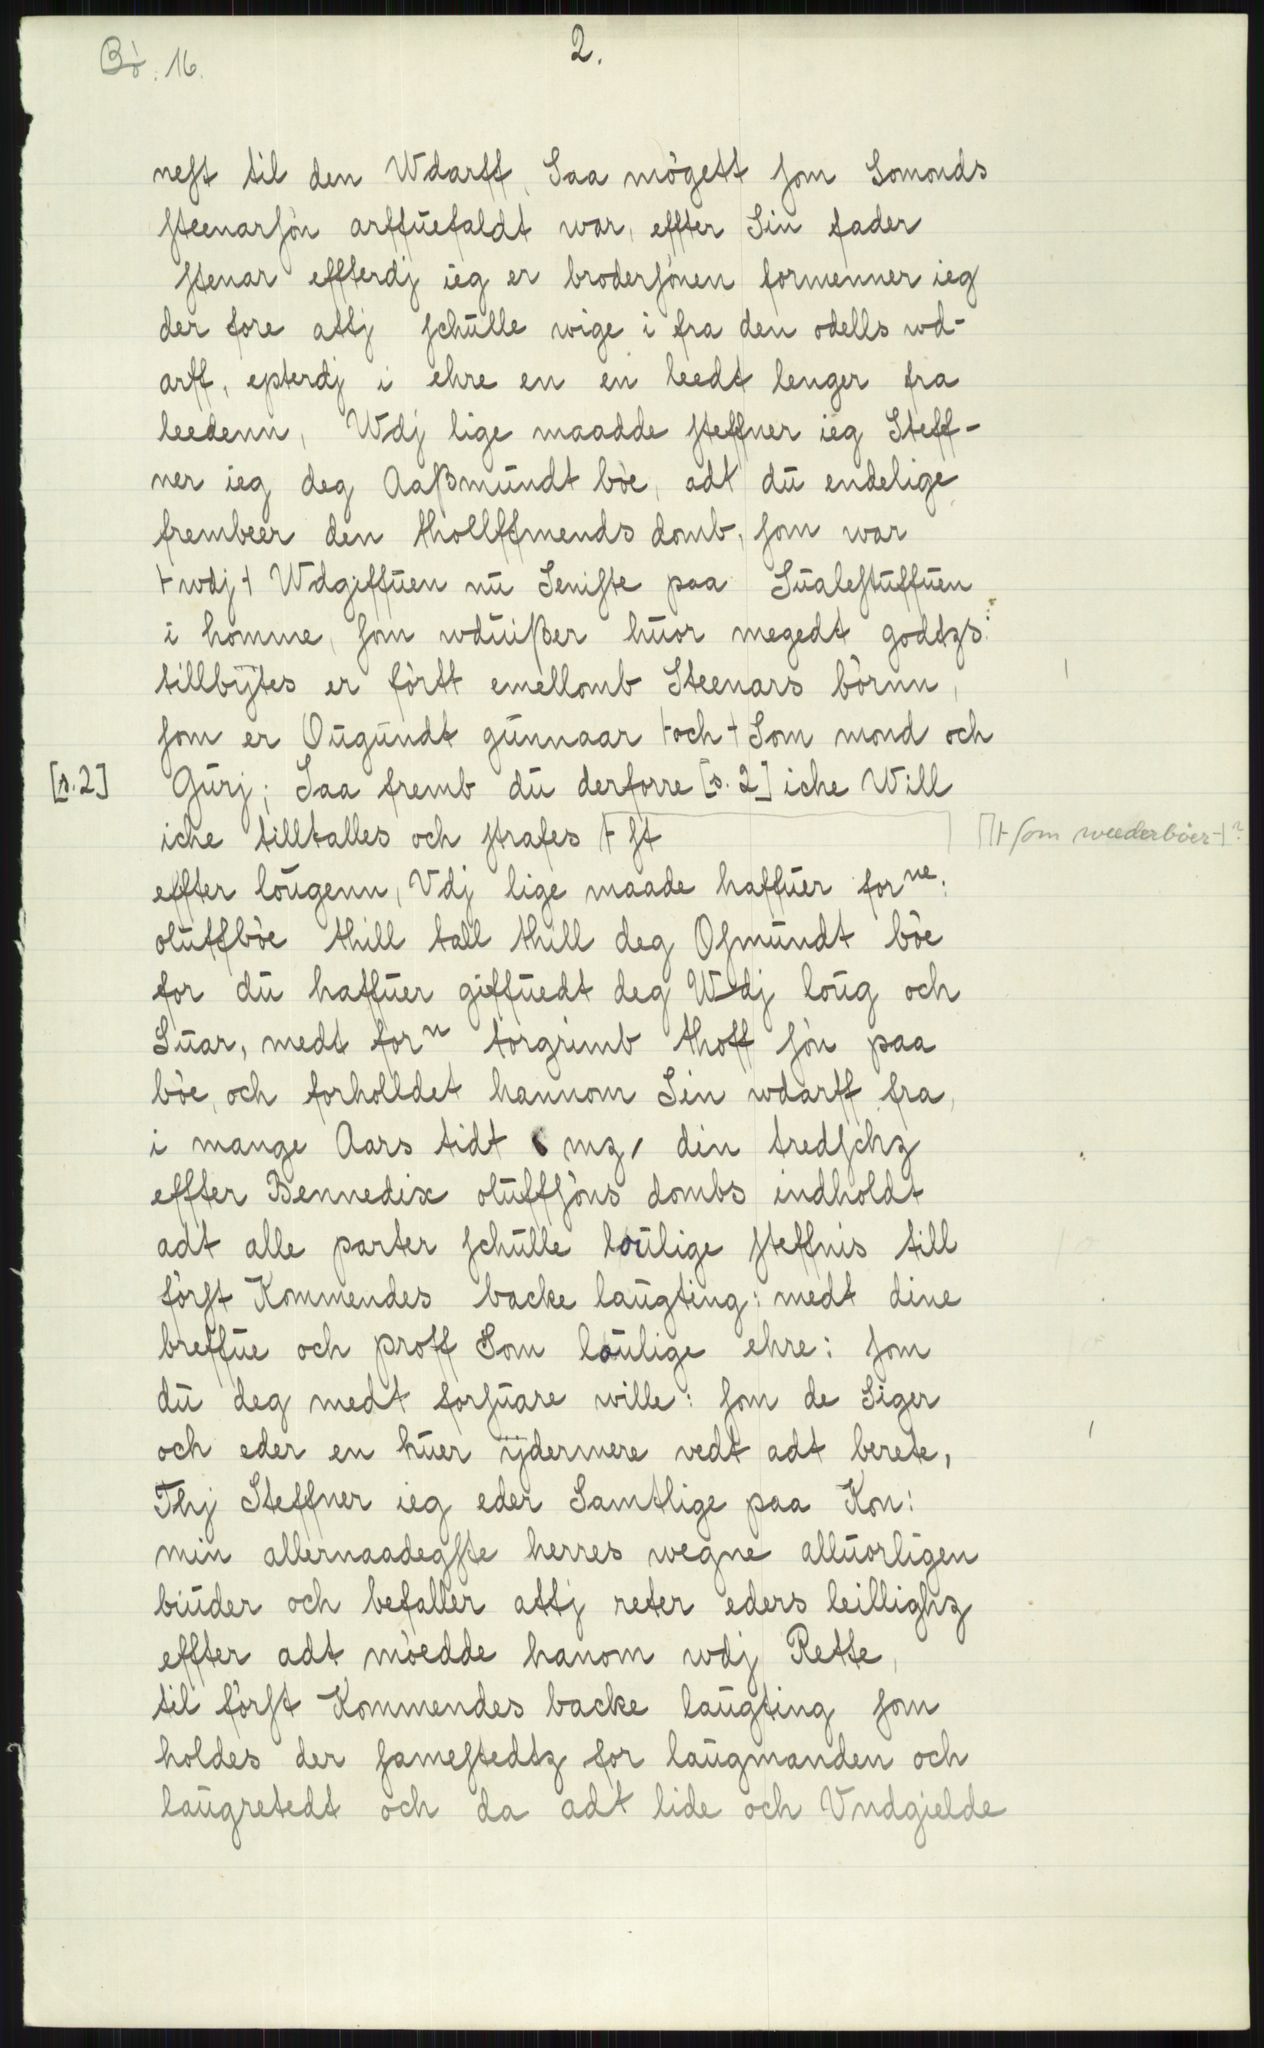 Bö. 16.
2.
nest til den Wdarff, Saa mögett som Somonds
steenarsön arffuefaldt war, effter Sin fader
stenar effterdj ieg er brodersönen formenner ieg
der fore attj schulle wige i fra den odells wd-
arff, epterdj i ehre en en leedt lenger fra
leedenn, Wdj lige maadde steffner ieg Steff-
ner ieg deg Aaßmundt böe, adt du endelige
frembeer den thollffmends domb, som war
+ wdj + Wdgiffuen nu Seniste paa Sualestuffuen
i homme, som wduißer huor megedt godtzs:
tillbÿtes er förtt emellomb Steenars börnn,
som er Ougundt gunnaar + och + Som mond och
[s. 2] Gurj; Saa fremb du derforre [s. 2] iche Will
iche tilltalles och strafes + st
+ som weederböer + ?
effter lougenn, Vdj lige maade haffuer forne:
oluffböe thill tall thill deg Osmundt böe
for du haffuer giffuedt deg Wdj loug och
Suar, medt forn torgrimb thoff sön paa
böe, och forholldet hannom Sin wdarff fra,
i mange Aars tidt mz, din tredschz
effter Bennedix oluffsöns dombs indholdt
adt alle parter schulle loulige steffnis till
först Kommendes backe laugting: medt dine
breffue och proff Som loulige ehre: som
du deg medt forsuare wille: som de Siger
och eder en huer ÿdermere vedt adt berete,
Thj Steffner ieg eder Samtlige paa Kon:
min allernaadegste herres wegne alluorligen
biuder och befaller attj reter eders leillighz
effter adt möedde hanom wdj Rette,
til först Kommendes backe laugting som
holdes der samestedtz for laugmanden och
laugretedt och da adt lide och Vndgielde